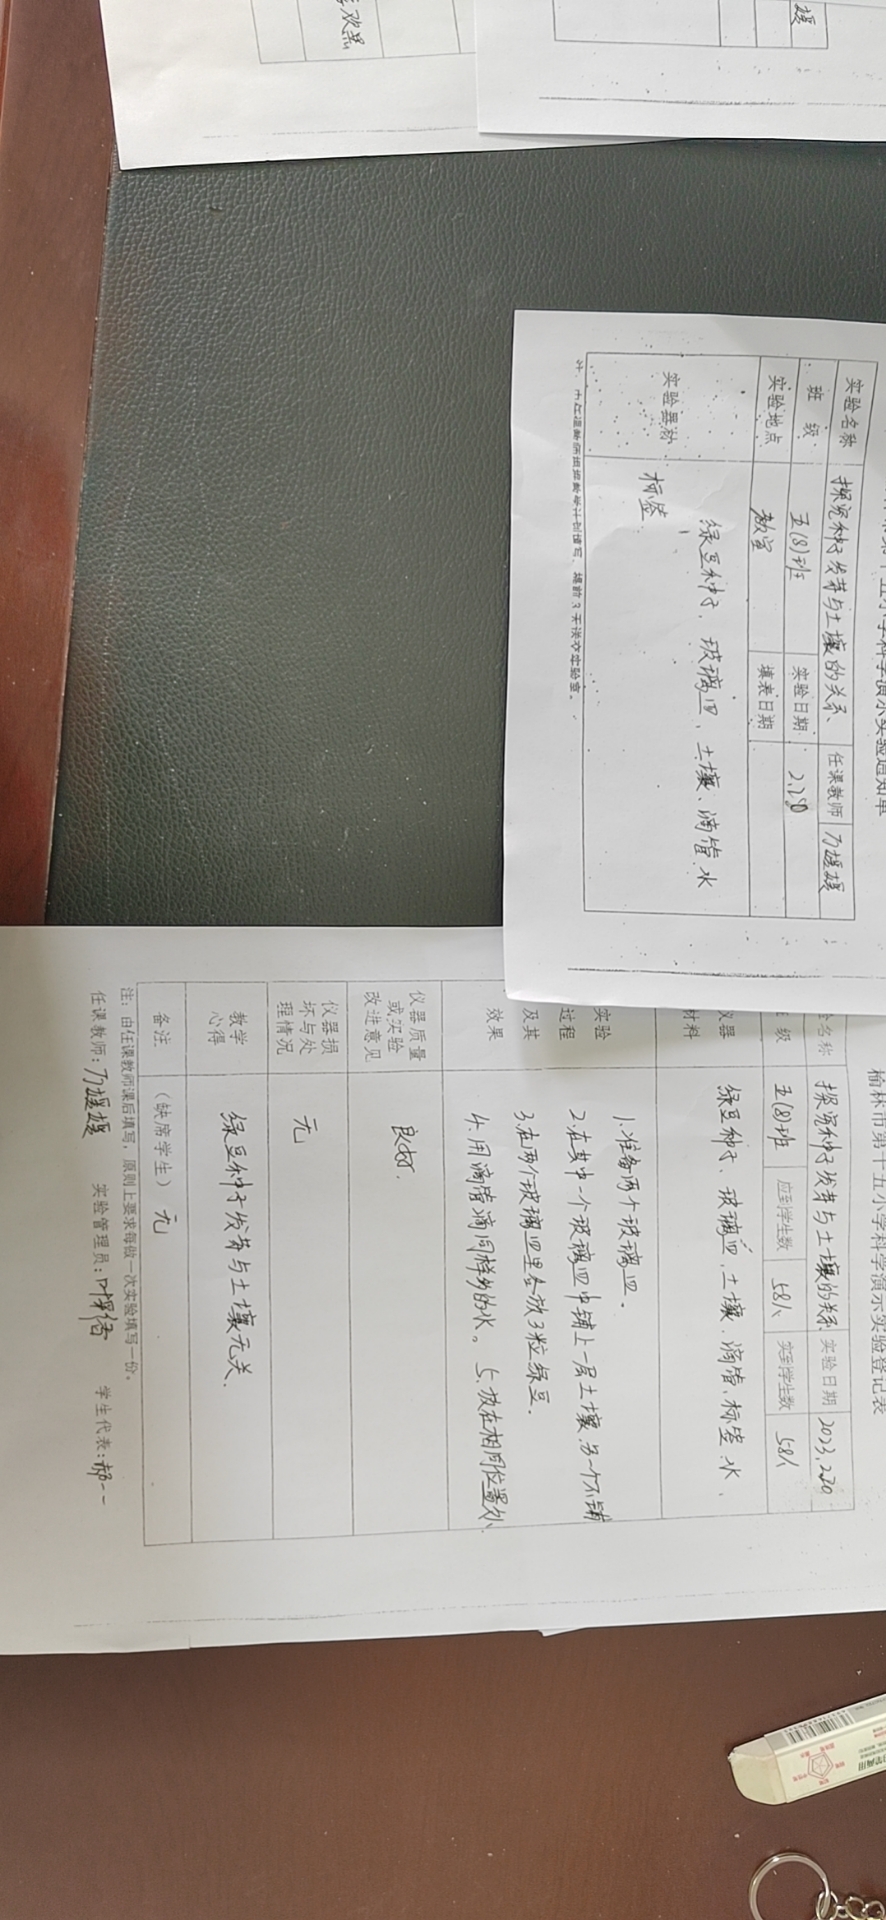 实验名称 探究种子发芽与土壤的关系 任课教师 刀媛媛
班 级 五(8)班 实验日期
实验地点 教室 填表日期
实验器材 绿豆种子、玻璃皿、土壤、滴管、水
标签
榆林市第十五小学科学演示实验登记表
名称 探究种子发芽与土壤的关系 实验日期 2023.2.20
级 五(8)班 应到学生数 58人 实到学生数 58人
仪器
材料 绿豆种子、玻璃皿、土壤、滴管、标签、水、
实验
过程
及其
效果
1.准备两个玻璃皿.
2.在其中一个玻璃皿中铺上一层土壤.另一个不铺
3.在两个玻璃皿里各放3粒绿豆.
4.用滴管滴同样多的水。 5.放在相同位置处
仪器质量
或实验
改进意见 良好.
仪器损
坏与处
理情况 无
教学
心得 绿豆种子发芽与土壤无关.
备注 (缺席学生) 无
注：由任课教师课后填写，原则上要求每做一次实验填写一份。
任课教师: 刀媛媛 实验管理员: 学生代表: 郝一一